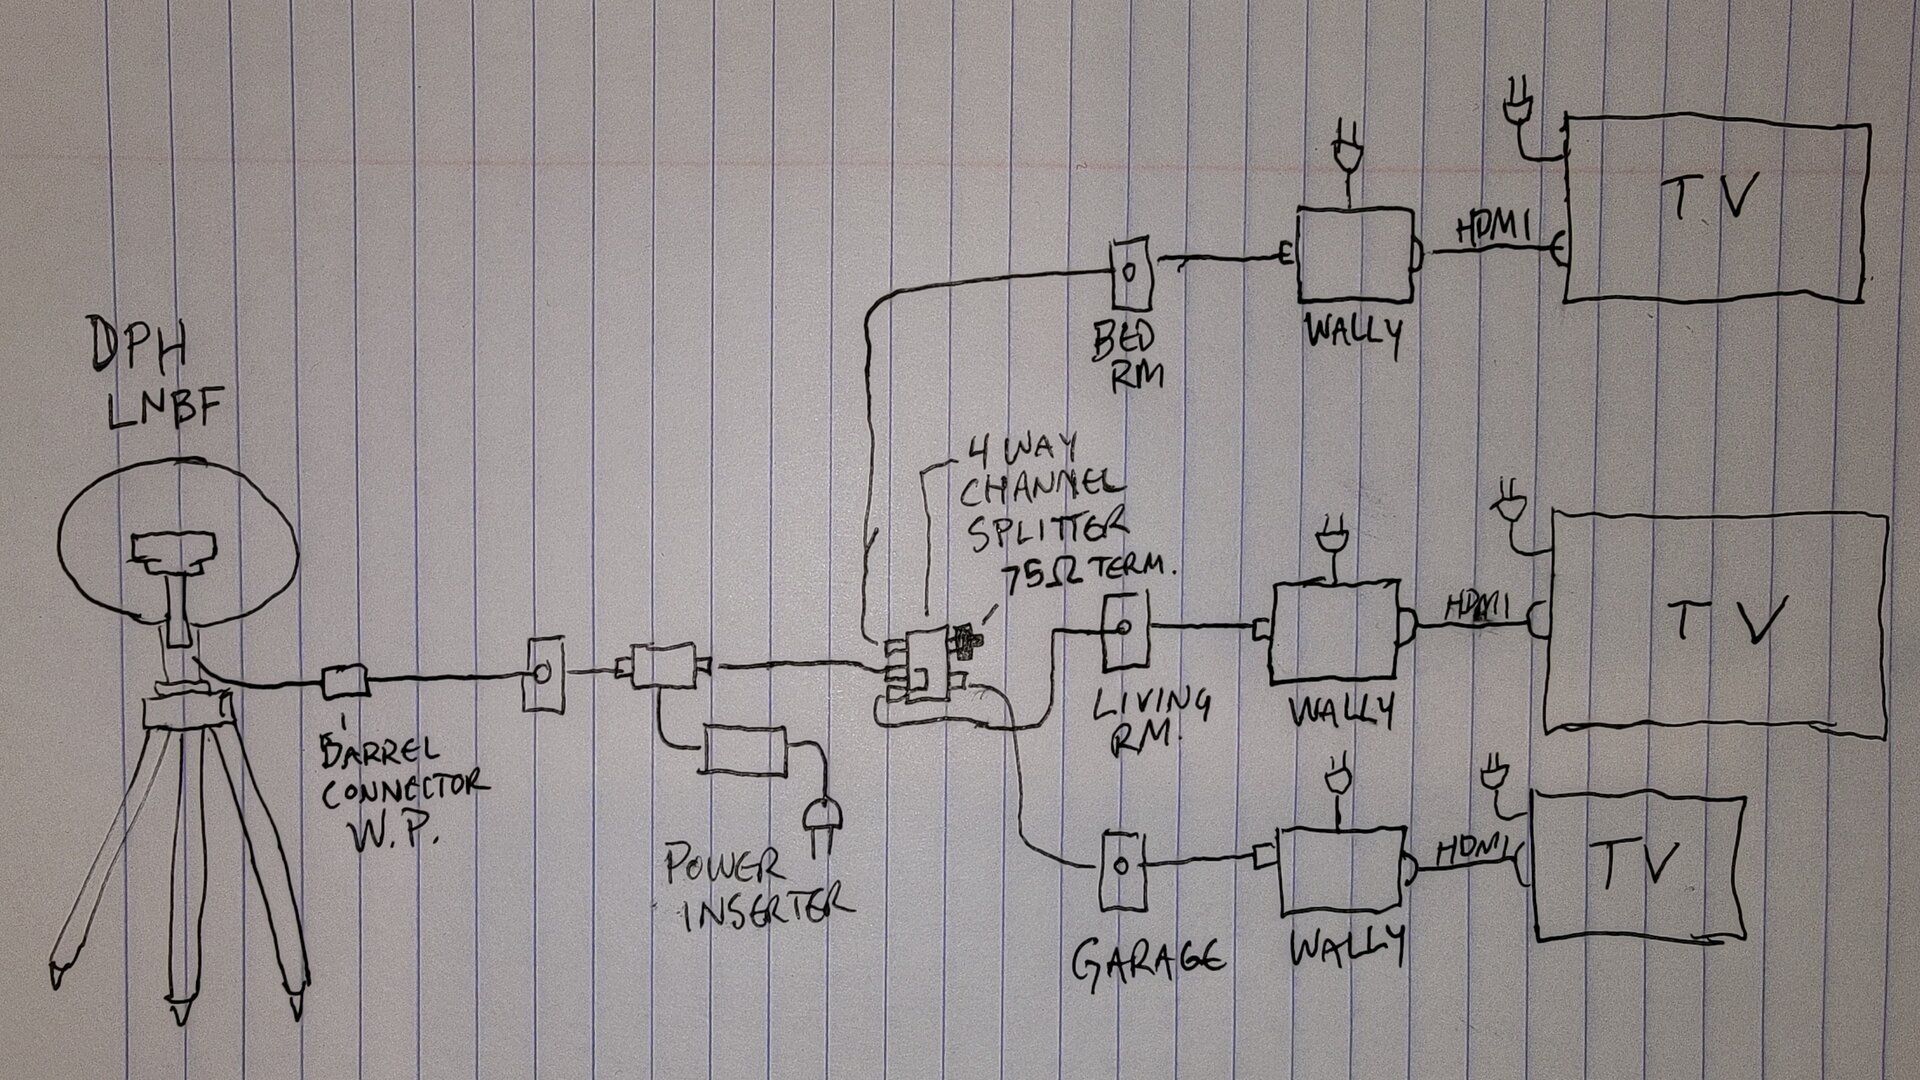 DPH
LNBF
BARREL
CONNECTOR
W.P.
POWER
INSERTER
4 WAY
CHANNEL
SPLITTER
75Ω TERM.
BED
RM
WALLY
HDMI
TV
LIVING
RM.
WALLY
HDMI
TV
GARAGE
WALLY
HDMI
TV